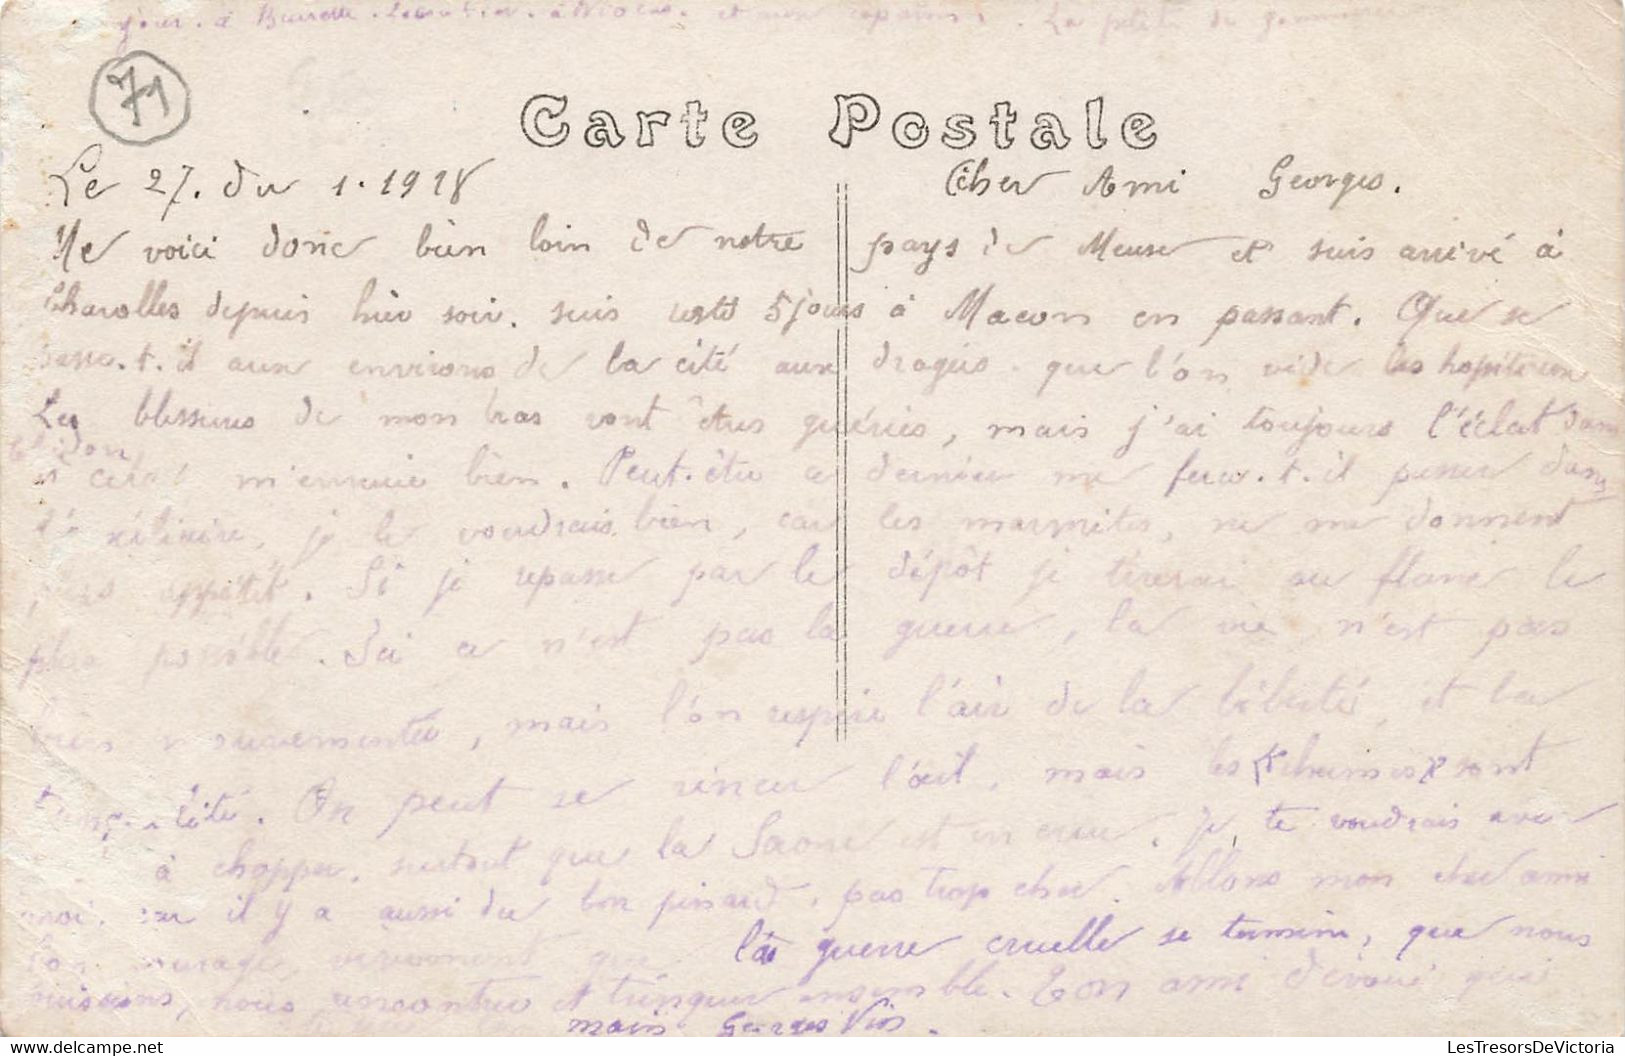 jour. à et aux copains. La petite de
71
Carte Postale
Le 27. du 1. 1918 Cher Ami Georges.
Me voici donc bien loin de notre pays de Meuse et suis arrivé à
Charolles depuis hièr soir. suis resté 5 jours à Macon en passant. Que se
passe.t.il aux environs de la cité aux dragés. que l'on vide les hopiteux
Les blessures de mon bras vont êtres guéries, mais j'ai toujours l'éclat dans
le bidon
et cela m'ennuie bien. Peut.être ce dernier me fera.t.il passer dans
l'auxiliaire, je le voudrais bien, car les marmites, ne me donnent
plus appétit. Si je repasse par le dépôt je tirerai au flanc le
plus possible. Ici ce n'est pas la guerre, la vie, n'est pas
bien mouvementée, mais l'on respire l'air de la liberté, et la
tranquilité. On peut se rincer l'œil, mais les sont
à chopper, surtout que la Saone est en crue. Je te voudrais avec
moi, car il y a aussi du bon pinard, pas trop cher. Allons mon cher ami
bon courage, vivement que la guerre cruelle se termine, que nous
puissions, nous rencontrer et trinquer ensemble. Ton ami dévoué
main Georges
LesTresorsDeVictoria.com